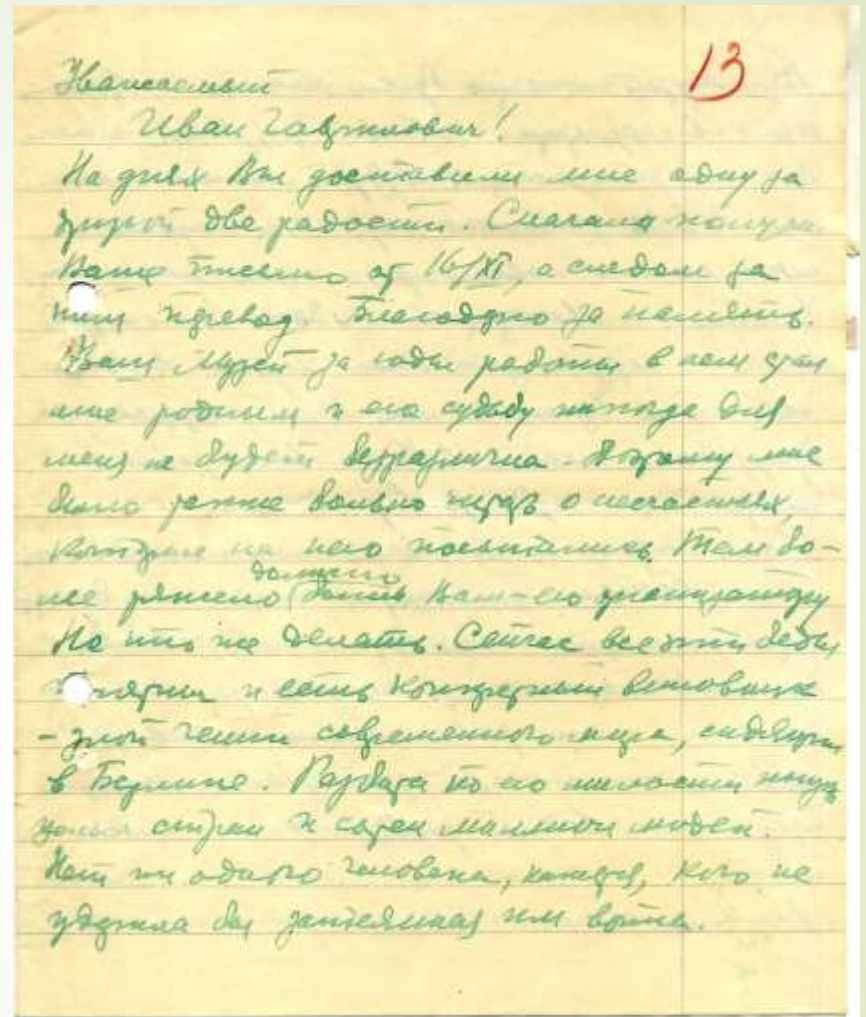 13
Уважаемый
Иван Гаврилович!
На днях Вы доставили мне одну за
другой две радости. Сначала получил
Ваше письмо от 16/XI, а следом за
ним перевод. Благодарю за память.
Ваш Музей за годы работы в нем стал
мне родным и его судьба никогда для
меня не будет безразлична. Поэтому мне
было также больно читать о несчастьях,
которые на него посыпались. Тем бо-
лее тяжело должно быть Вам – его
Но что же делать. Сейчас все эти беды
понятны и есть конкретный виновник
– злой гений современного мира, сидящий
в Берлине. Разбита по его милости жизнь
целых стран и сотен миллионов людей.
Нет ни одного человека, кажется, кого не
ударила бы затеянная им война.